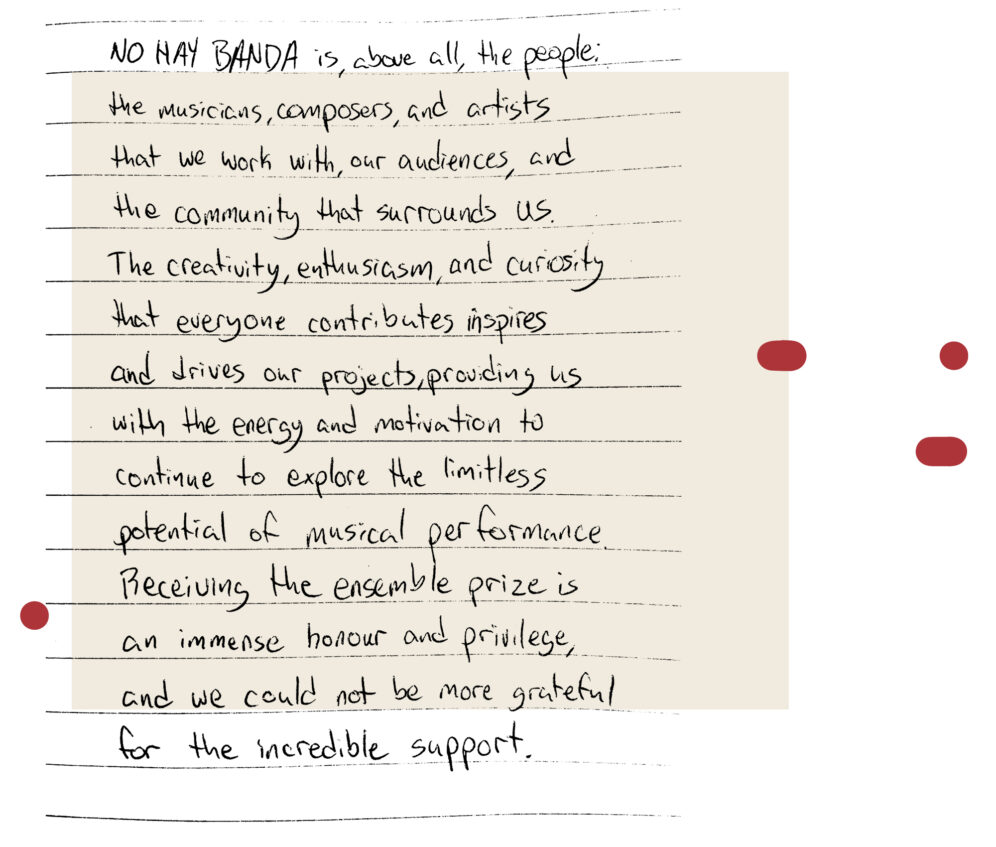 NO HAY BANDA is, above all, the people:
the musicians, composers, and artists
that we work with, our audiences, and
the community that surrounds us.
The creativity, enthusiasm, and curiosity
that everyone contributes inspires
and drives our projects, providing us
with the energy and motivation to
continue to explore the limitless
potential of musical performance.
Receiving the ensemble prize is
an immense honour and privilege,
and we could not be more grateful
for the incredible support.